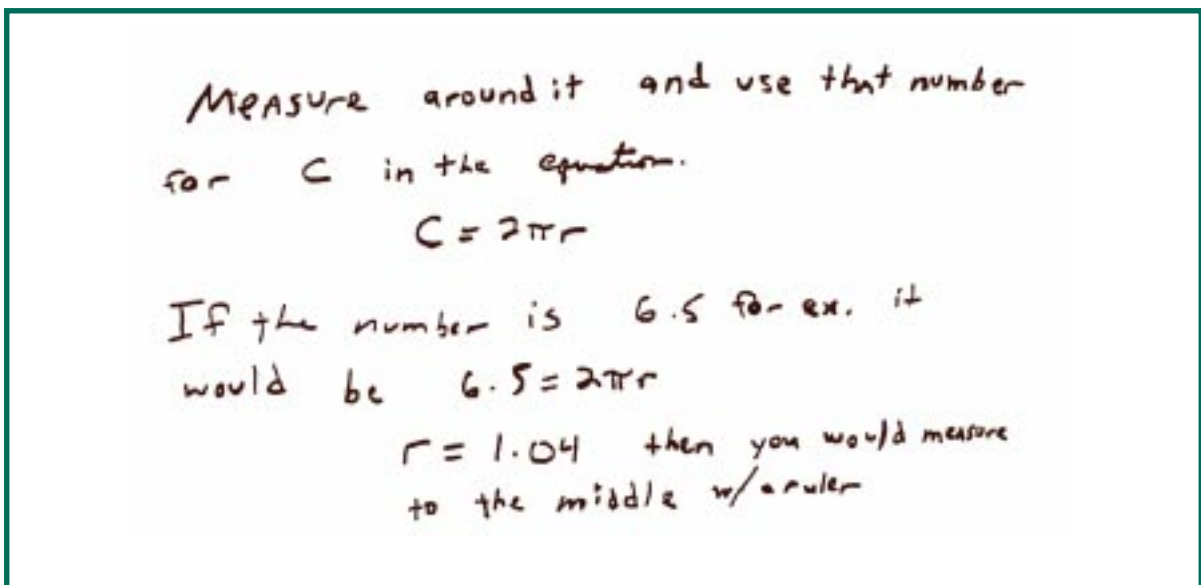 Measure around it and use that number
for C in the equation.
C = 2πr
If the number is 6.5 for ex. it
would be 6.5 = 2πr
r = 1.04 then you would measure
to the middle w/a ruler